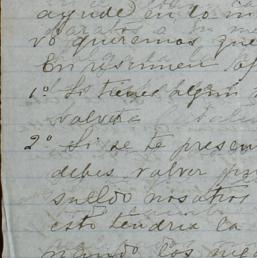 ayude en lo m
vo queremos que
En resumen
1º Si tienes algun
volver
2º Si se te presen
debes volver
sueldo nosotros
esto tendria ca
mando los